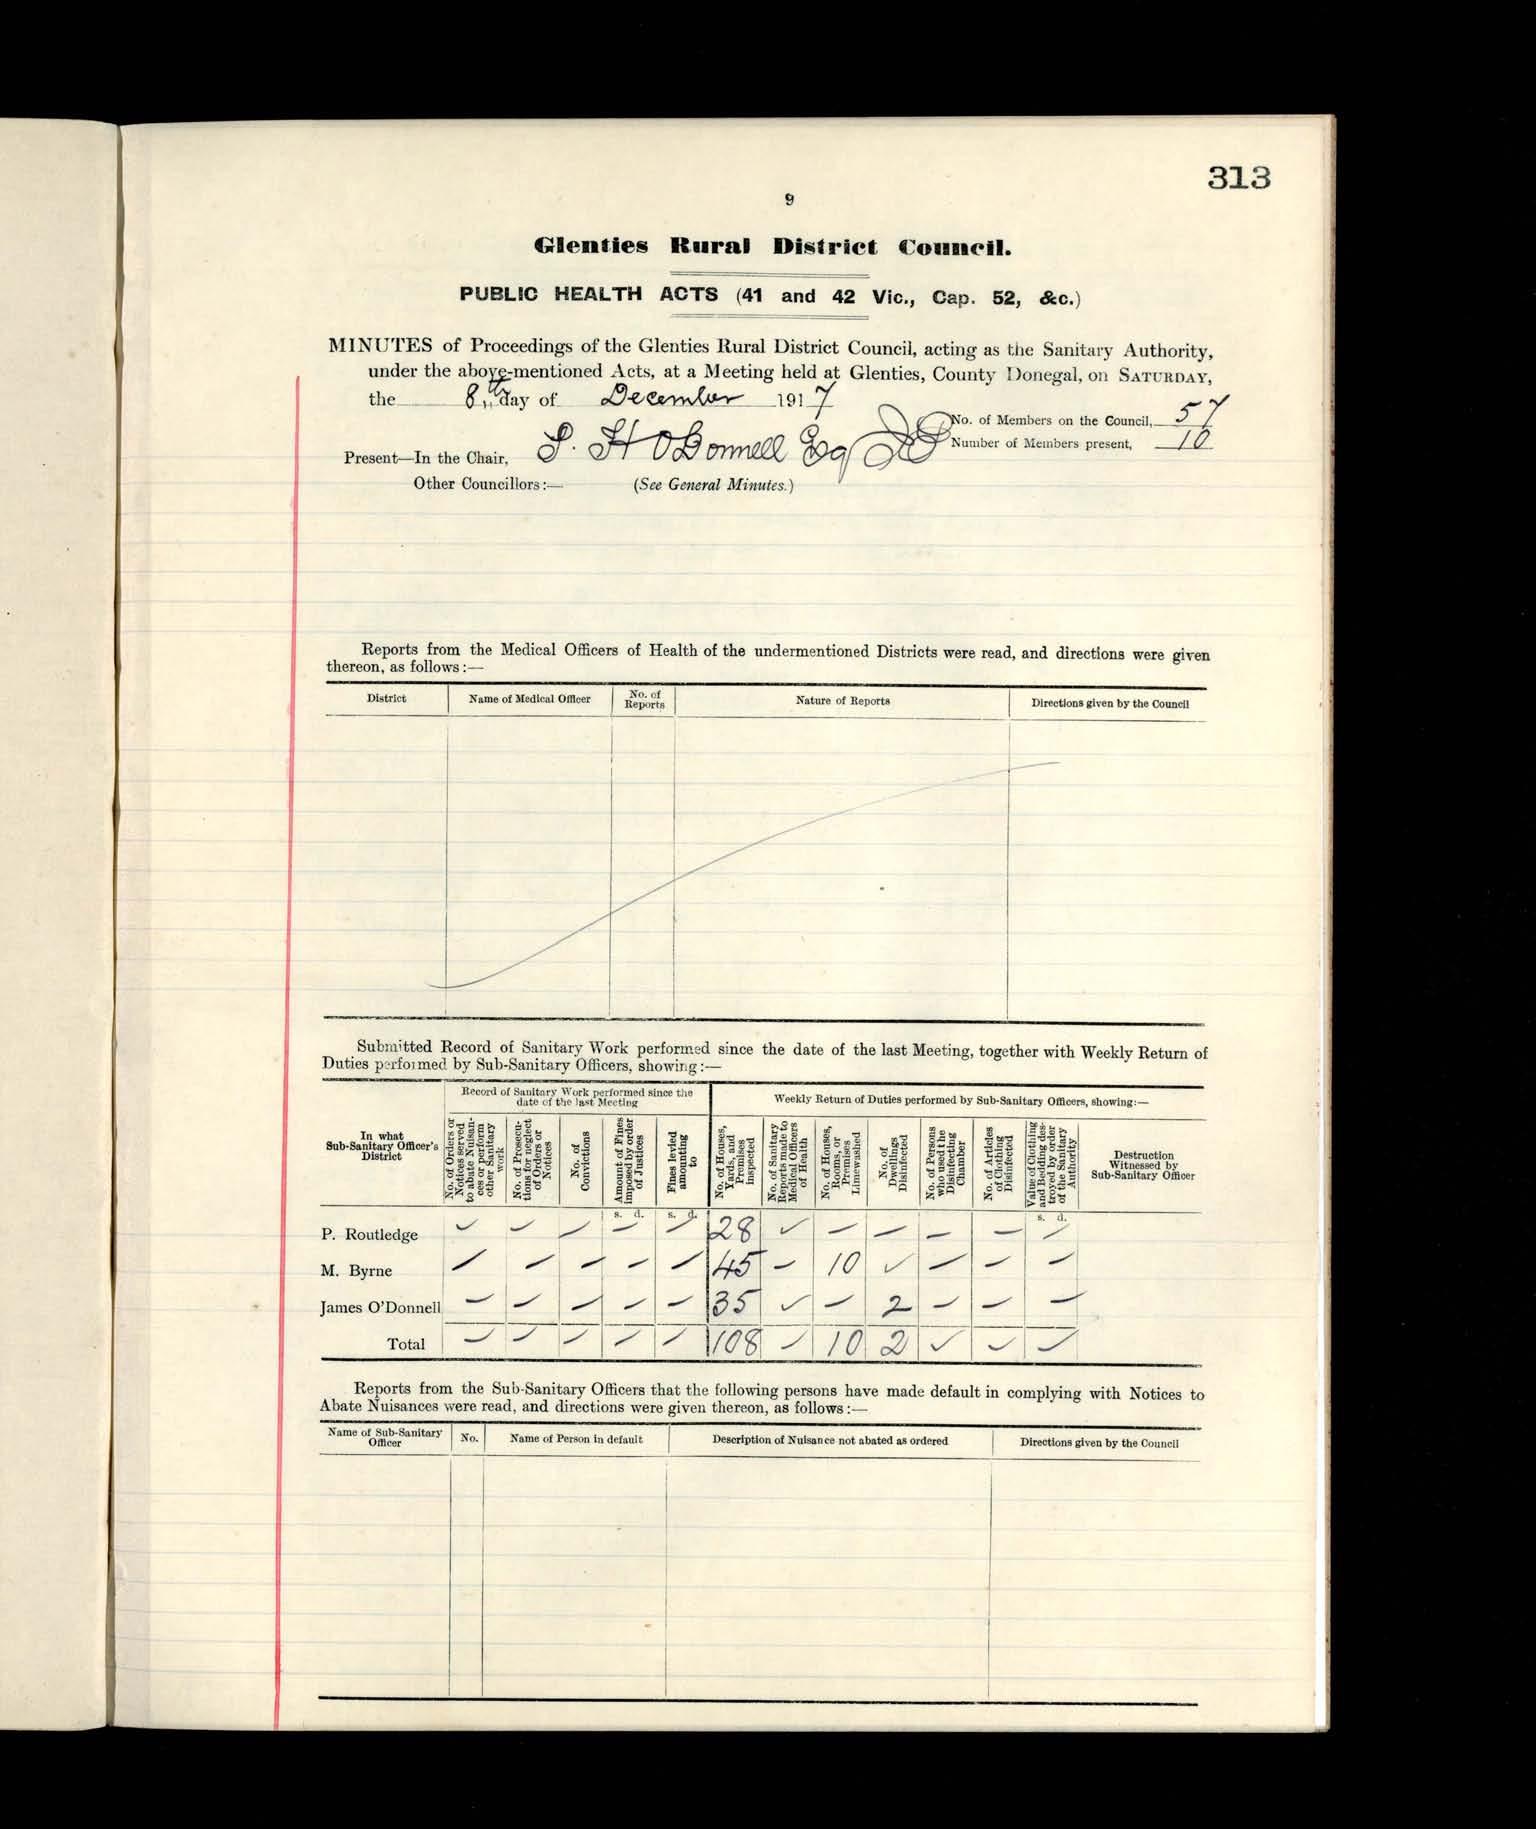 313
9
Glenties Rural District Council.
PUBLIC HEALTH ACTS (41 and 42 Vic., Cap. 52, &c.)
MINUTES of Proceedings of the Glenties Rural District Council, acting as the Sanitary Authority,
under the above-mentioned Acts, at a Meeting held at Glenties, County Donegal, on SATURDAY,
the 8th day of December 1917
No. of Members on the Council, 57
Number of Members present, 10
Present—In the Chair, P. H O'Donnell Esq JP
Other Councillors:— (See General Minutes.)
Reports from the Medical Officers of Health of the undermentioned Districts were read, and directions were given
thereon, as follows:—
District | Name of Medical Officer | No. of Reports | Nature of Reports | Directions given by the Council
Submitted Record of Sanitary Work performed since the date of the last Meeting, together with Weekly Return of
Duties performed by Sub-Sanitary Officers, showing:—
Record of Sanitary Work performed since the date of the last Meeting | Weekly Return of Duties performed by Sub-Sanitary Officers, showing:—
In what Sub-Sanitary Officer's District | No. of Orders or Notices served to abate Nuisances or perform other Sanitary work | No. of Prosecutions for neglect of Orders or Notices | No. of Convictions | Amount of Fines imposed by order of Justices | Fines levied amounting to | No. of Houses, Yards, and Premises inspected | No. of Sanitary Reports made to Medical Officers of Health | No. of Houses, Rooms, or Premises Limewashed | No. of Dwellings Disinfected | No. of Persons who used the Disinfecting Chamber | No. of Articles of Clothing Disinfected | Value of Clothing and Bedding destroyed by order of the Sanitary Authority | Destruction Witnessed by Sub-Sanitary Officer
s. d. s. d. s. d.
P. Routledge – – – – – 28 – – – – – –
M. Byrne – – – – – 45 – 10 – – – –
James O'Donnell – – – – – 35 – – 2 – – –
Total – – – – – 108 – 10 2 – – –
Reports from the Sub-Sanitary Officers that the following persons have made default in complying with Notices to
Abate Nuisances were read, and directions were given thereon, as follows:—
Name of Sub-Sanitary Officer | No. | Name of Person in default | Description of Nuisance not abated as ordered | Directions given by the Council